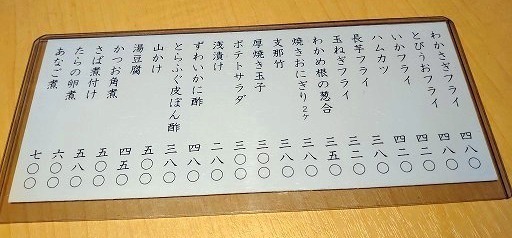 わかさぎフライ 四八〇
とびうおフライ 四八〇
いかフライ 四二〇
ハムカツ 四二〇
長芋フライ 三八〇
玉ねぎフライ 三二〇
わかめ根の葱合 三五〇
焼きおにぎり2ケ 三八〇
支那竹 三八〇
厚焼き玉子 三〇〇
ポテトサラダ 三〇〇
浅漬け 二八〇
ずわいかに酢 四八〇
とらふぐ皮ぽん酢 三八〇
山かけ 五〇〇
湯豆腐 四五〇
かつお角煮 五〇〇
さば煮付け 五八〇
たらの卵煮 六〇〇
あなご煮 七〇〇